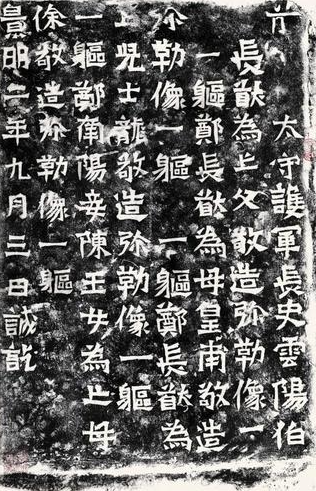 太守護軍長史雲陽伯
長猷為亡父敬造弥勒像一
一軀鄭長猷為母皇甫敬造
弥勒像一軀 一軀鄭長猷為
亡児士龍敬造弥勒像一軀
一軀鄭南陽妾陳玉女為亡母
徐敬造弥勒像一軀
景明二年九月三日誡訖